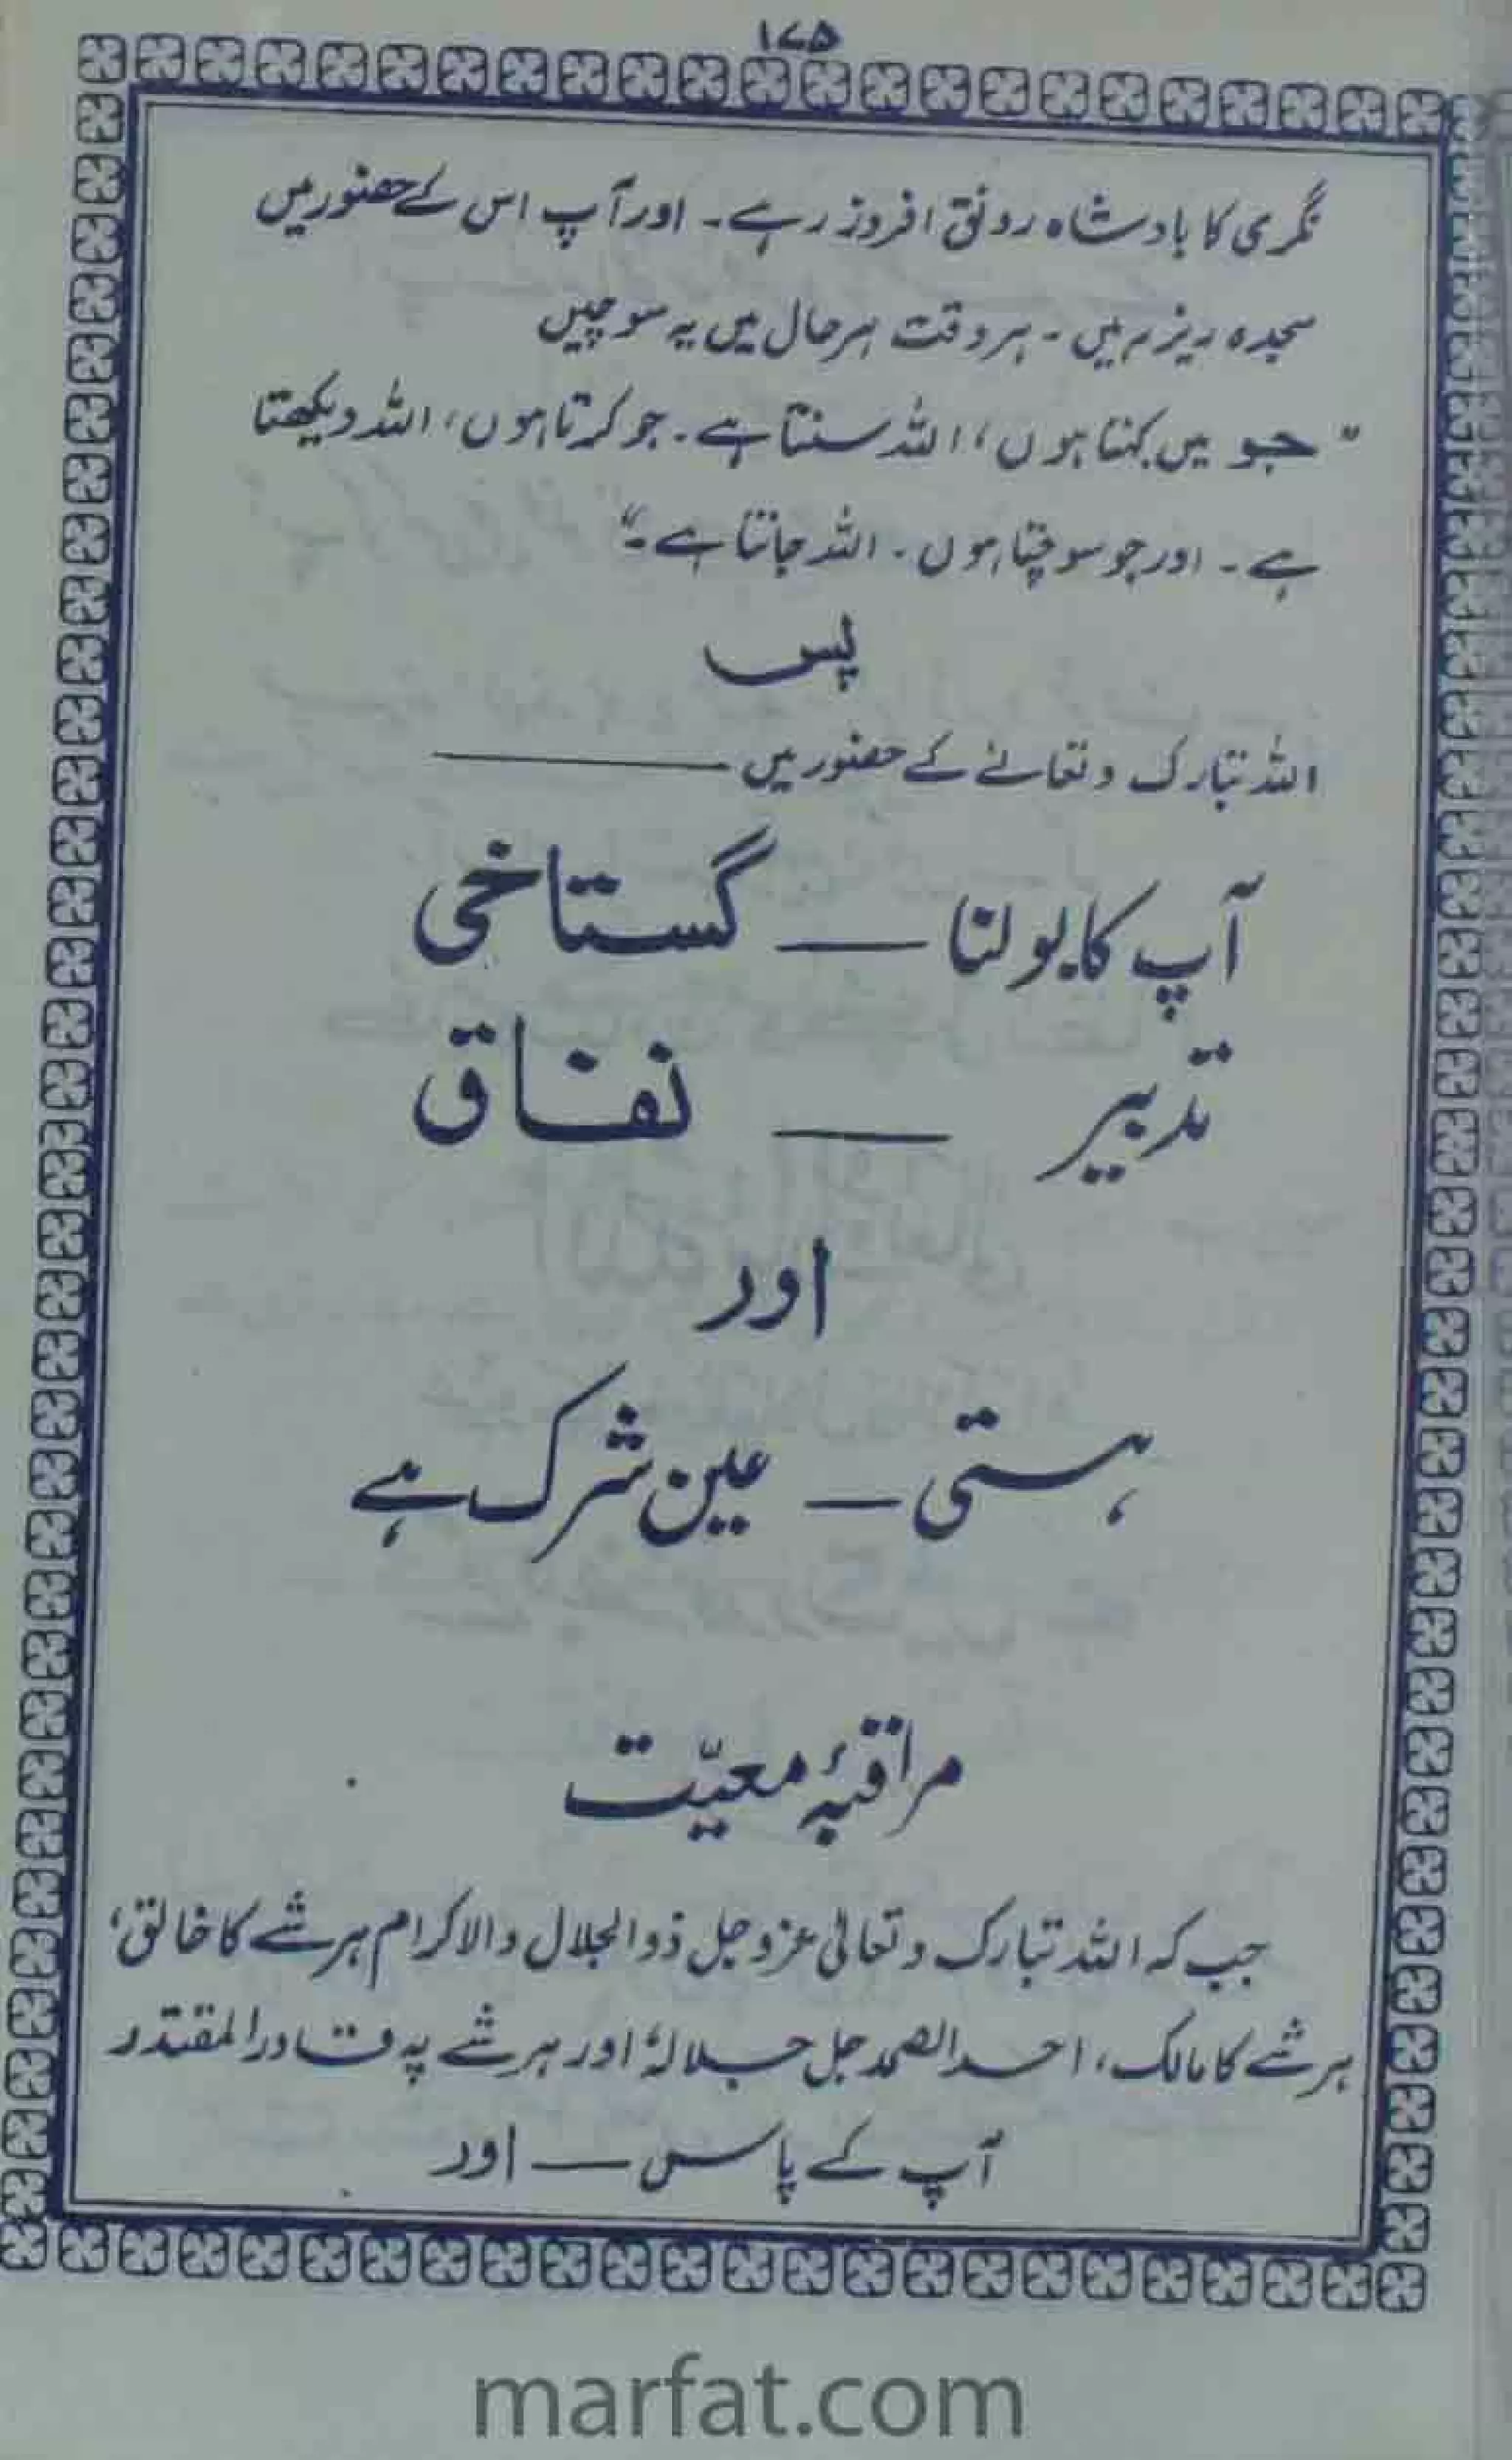 ۱۷۵
نگری کا بادشاہ رونق افروز رہے۔ اور آپ اس کے حضور میں
سجدہ ریز رہیں۔ ہر وقت ہر حال میں یہ سوچیں
"جو میں کہتا ہوں، اللہ سنتا ہے۔ جو کرتا ہوں، اللہ دیکھتا
ہے۔ اور جو سوچتا ہوں۔ اللہ جانتا ہے۔"
پس
اللہ تبارک و تعالےٰ کے حضور میں ———
آپ کا بولنا — گستاخی
تدبیر — نفاق
اور
ہستی — عین شرک ہے
مراقبۂ معیّت
جب کہ اللہ تبارک و تعالیٰ عزوجل ذوالجلال والاکرام ہر شے کا خالق،
ہر شے کا مالک، احد الصمد جل جلالہٗ اور ہر شے پہ قادر المقتدر
آپ کے پاس — اور
marfat.com